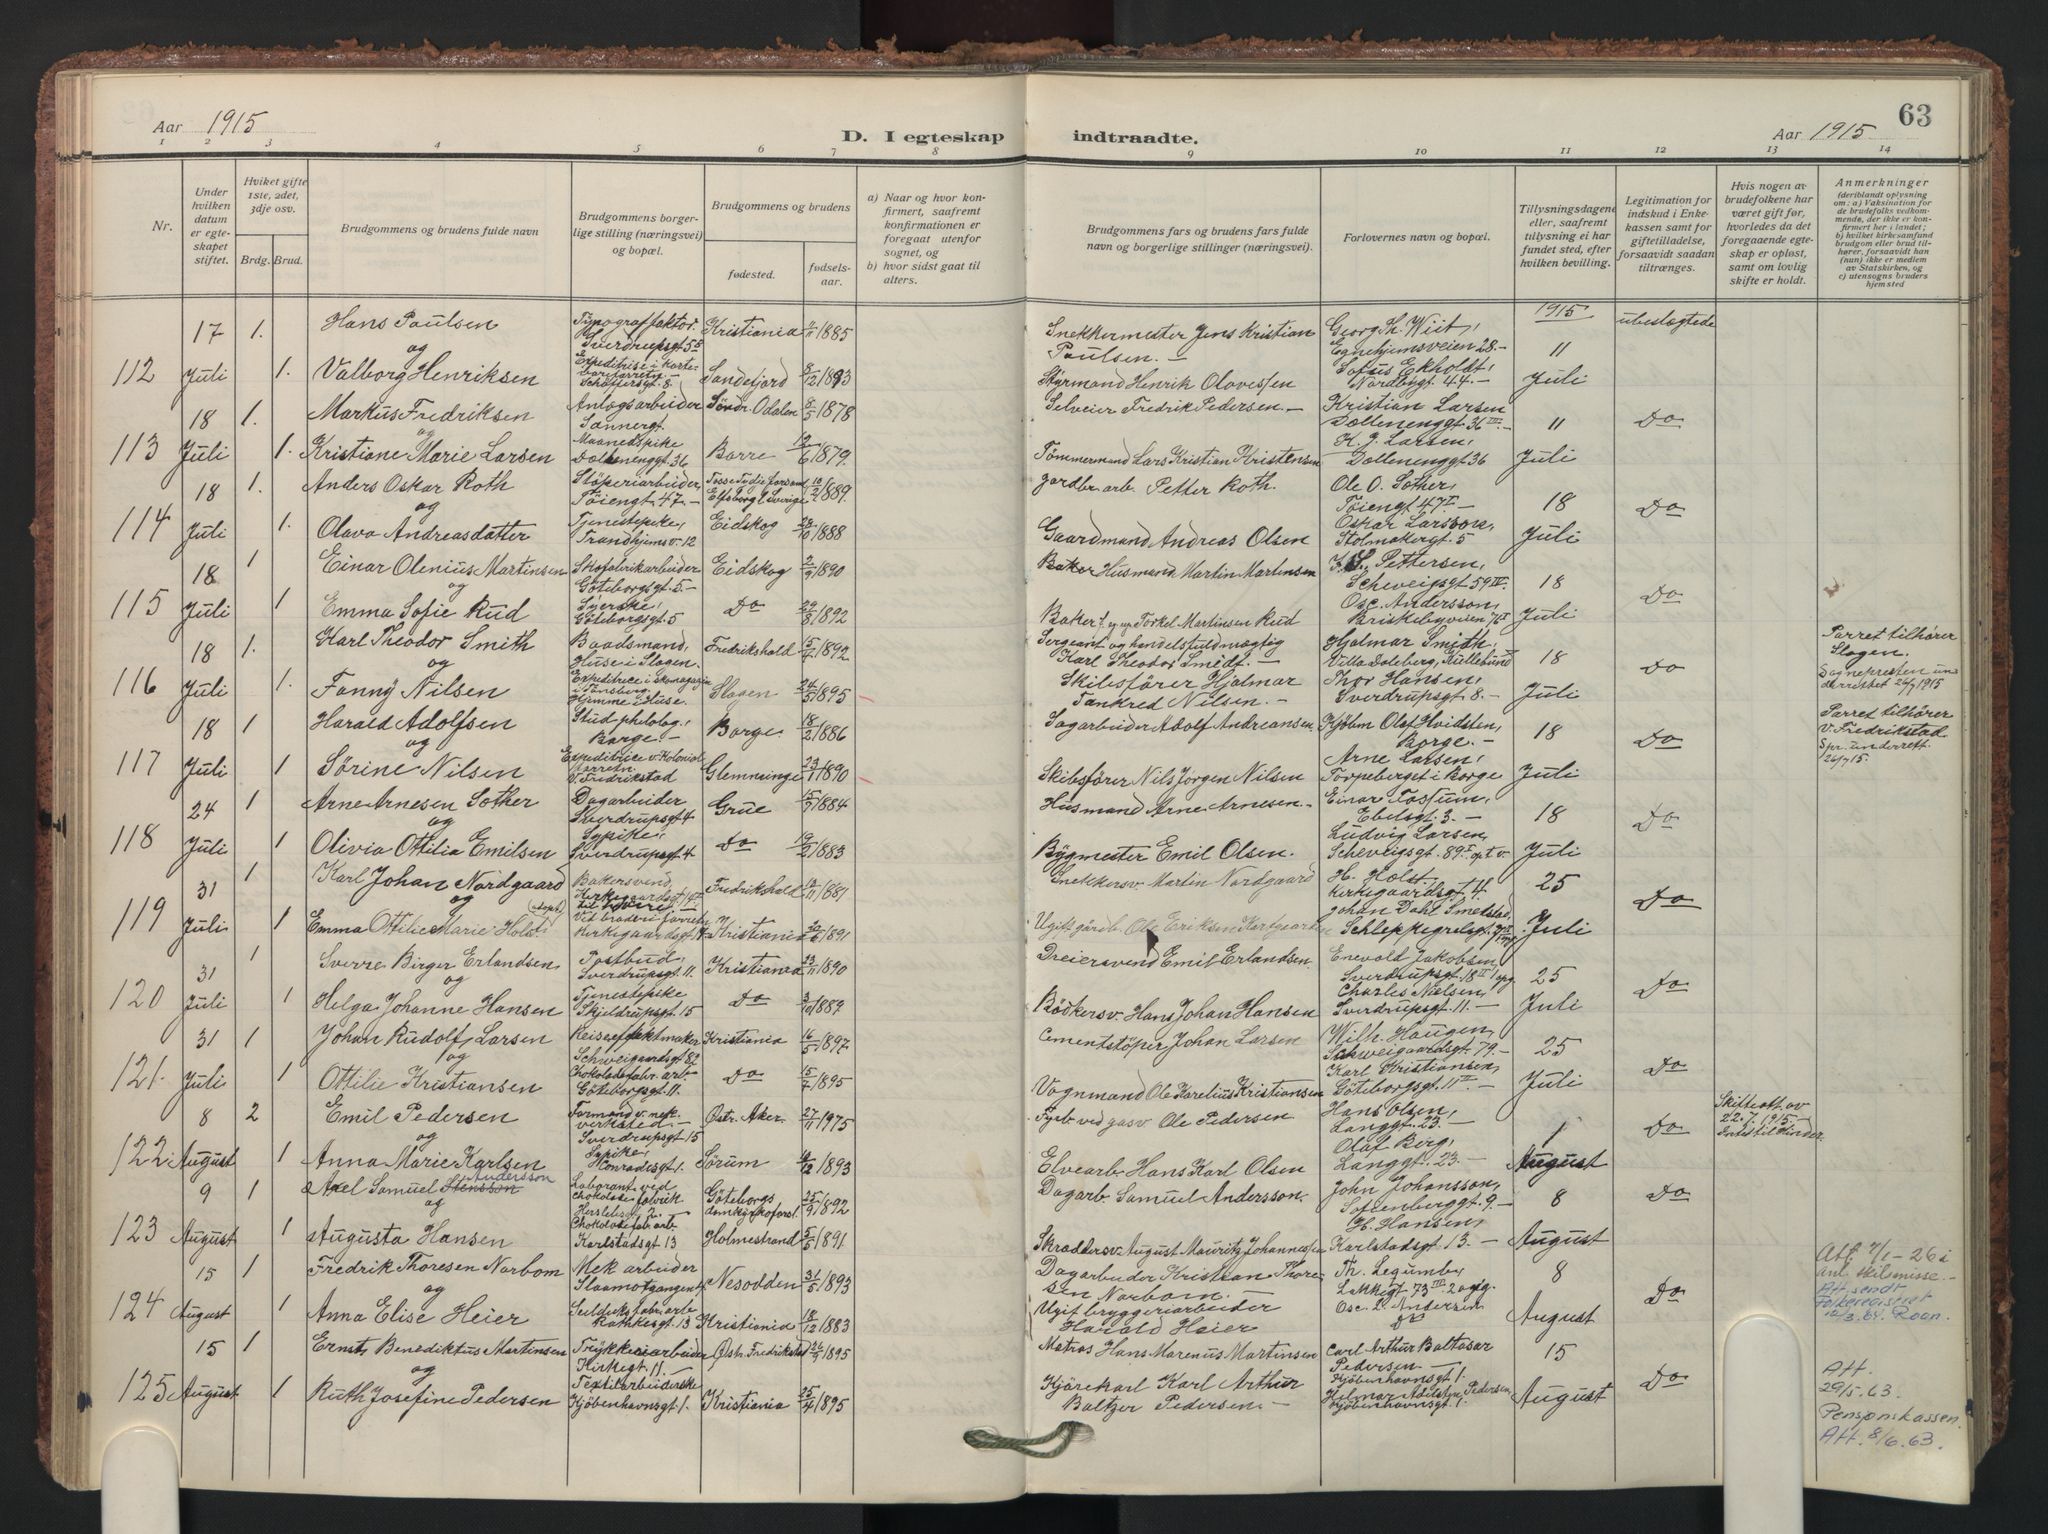 Aar 1915
D. I egteskap indtraadte.
Aar 1915
63
1 2 3 4 5 6 7 8 9 10 11 12 13 14
Nr.
Under hvilken datum er egteskapet stiftet.
Hviket gifte 1ste, 2det, 3dje osv.
Brdg. Brud.
Brudgommens og brudens fulde navn
Brudgommens borgerlige stilling (næringsvei) og bopæl.
Brudgommens og brudens
fødested.
fødselsaar.
a) Naar og hvor konfirmert, saafremt konfirmationen er foregaat utenfor sognet, og
b) hvor sidst gaat til alters.
Brudgommens fars og brudens fars fulde navn og borgerlige stillinger (næringsvei).
Forlovernes navn og bopæl.
Tillysningsdagene eller, saafremt tillysning ei har fundet sted, efter hvilken bevilling.
Legitimation for indskud i Enkekassen samt for giftetilladelse, forsaavidt saadan tiltrænges.
Hvis nogen av brudefolkene har været gift før, hvorledes da det foregaaende egteskap er opløst, samt om lovlig skifte er holdt.
Anmerkninger
(deriblandt oplysning om: a) Vaksination for de brudefolks vedkommende, der ikke er konfirmert her i landet; b) hvilket kirkesamfund brudgom eller brud tilhører, forsaavidt han (hun) ikke er medlem av Statskirken, og c) utensogns bruders hjemsted
112 17 Juli 1. Hans Paulsen Typograffaktor. Sverdrupsgt 5 Kristiania 1885 Snekkermester Jens Kristian Paulsen. — Georg Th. Wiit, Egnehjemsveien 28. — 1915 11 Juli ubeslægtede
og
1. Valborg Henriksen Schøffersgt. 8. Sandefjord 8/12 1893 Styrmand Henrik Olavessen Sofus Ekholdt, Nordbygt 44. —
113 18 Juli 1. Markus Fredriksen Anlogsarbeider Sannergt. Søndr. Odalen 8/5 1878 Selveier Fredrik Pedersen. — Kristian Larsen Dællenenggt 36 III. — 11 Juli Do
og
1. Kristiane Marie Larsen Maanedspike Dællenenggt 36 Borre 12/6 1879. Tømmermand Lars Kristian Kristensen K. J. Larsen, Dællenenggt 36
114 18 Juli 1. Anders Oskar Roth Støperiarbeider, Tøiengt 47. — Elfsborg l. Sverige 10/2 1889. gardbr. arb. Petter Roth. Ole O. Sother, Tøiengt 47 I — 18 Juli Do
og
1. Olava Andreasdatter Tjenestepike, Trondhjemsv. 12 Eidskog 28/10 1888 Gaardmand Andreas Olsen Oskar Larsson, Stolmakergt. 5
115 18 Juli 1 Einar Olenius Martinsen Skofabrikarbeider Göteborgsgt. 5. — Eidskog 2/9 1890 Husmand Martin Martinsen Pettersen, Schweigsgt 59 IV. 18 Juli Do
og
1 Emma Sofie Rud Syerske, Göteborgsgt. 5 Do 29/8 1892 Baker Torkel Martinsen Rud Osc. Andersson, Briskebyveien 76 I
116 18 Juli 1. Karl Theodor Smith Baadsmand, Huse i Slagen. Fredrikshald 5/4 1892 Sergeant og handelsfuldmægtig Karl Theodor Smidt. — Hjalmar Smith, 18 Juli Do Parret tilhører Slagen. Sognepresten underrettet 26/7 1915
og
1. Fanny Nilsen Expeditrice i skomagazin i Tønsberg, Hjemme i Huse. Slagen 24/5 1895 Skibsfører Hjalmar Tankred Nilsen. — Thor Hansen, Sverdrupsgt 8. —
117 18 Juli 1 Harald Adolfsen Stud. philolog., Borge. — Borge. 18/2 1886 Sagarbeider Adolf Andreansen. Kjøbm. Olaf Hvidsten, Borge. — 18 Juli Do Parret tilhører V. Fredrikstad Spr. underrett. 26/7 15.
og
1 Sørine Nilsen Expeditrice v. Kolonialforretn. V. Fredrikstad Glemminge 23/1 1890 Skibsfører Nils Jørgen Nilsen Arne Larsen, Torpeberget i Borge
118 24 Juli 1 Arne Arnesen Sother Dagarbeider Sverdrupsgt 4 Grue 15/7 1884 Husmand Arne Arnesen. — Einar Fossum, Ebelsgt. 3. — 18 Juli Do
og
1 Olivia Ottilia Emilsen Sypike, Sverdrupsgt. 4 Do 19/2 1883 Bygmester Emil Olsen. Ludvig Larsen, Scheveigsgt. 89 I op. t. v.
119 31 Juli 1 Karl Johan Nordgaard Bakersvend, Kirkegaardsgt. Fredrikshald 1881 Snekkersv. Martin Nordgaard H. Holst, Kirkegaardsgt. 4. 25 Juli Do
og
1 Emma Ottilie Marie Holst (adopt.) Ved broderiforretn. Kirkegaardsgt. 4 Kristiania 1891 Ugift gårdb. Ole Eriksen Johan Dahl Smedstad, Schleppegrelsgt.
120 31 Juli 1 Sverre Birger Erlandsen Postbud, Sverdrupsgt. 11. Kristiania 23/11 1890 Dreiersvend Emil Erlandsen. Enevold Jakobsen, Sverdrupsgt. 18 II opg. 25 Juli Do
og
1 Helga Johanne Hansen Tjenestepike Skjeldrupsgt. 15 Do 3/10 1887 Bødkersv. Hans Johan Hansen Charles Nielsen, Sverdrupsgt. 11. —
121. 31 Juli 1 Johan Rudolf Larsen Reiseeffektmaker Schweigaardsgt 82 Kristiania 16/5 1897 Cementstöper Johan Larsen Wilh. Haugen, Schweigaardsgt. 79. — 25 Juli Do
og
1 Ottilie Kristiansen Chokoladefabr. arb. Göteborgsgt. 11. Do 15/7 1895 Vognmand Ole Karelius Kristiansen Karl Kristiansen, Göteborgsgt. 11 II —
122 8 August 2 Emil Pedersen Formand v. mek. verksted. — Sverdrupsgt 15 Østr. Aker. 27/11 1975 Fyrb. ved gasv. Ole Pedersen Hans Olsen, Langgt. 23. — 1 August Do Skifteatt. av 22.7.1915. Intet til hinder.
og
1 Anna Marie Karlsen Sypike, Conradisgt. 1. Sørum 1893 Elvearb. Hans Karl Olsen Olaf Berg, Langgt. 23. —
123 9 August 1 Axel Samuel Stensson Andersson Laborant ved chokoladefabrik Herslebsgt. 2. — Göteborgs domkyrkoförsl. 25/9 1892 Dagarb. Samuel Andersson. John Johansson, Sofienberggt. 9. — 8 August Do
og
1 Augusta Hansen Chokoladefab. arb. Karlstadsgt. 13 Holmestrand 5/5 1891 Skræddersv. August Mauritz Johannessen H. Hansen, Karlstadsgt. 13. —
124 15 August 1 Fredrik Thoresen Narbom Mek. arbeider Slaamotgangen 4 Nesodden 31/5 1893 Dagarbeider Kristian Thoresen Narbom. — Th. Legumb, Lakkegt 73 III 2 opg. 8 August Do Att. 7/1 – 26 i anl. skilsmisse. — Att. sendt Folkeregistret 12/3.64. Roan.
og
1 Anna Elise Heier Seildukfabr. arb. Rathkesgt. 13 Kristiania 18/12 1883 Ugift bryggeriarbeider Harald Heier Osc. L. Andersen Do
125 15 August 1 Ernst Benediktus Martinsen Trykkeriarbeider Kirkegt. 11. Østr. Fredrikstad 26/9 1895 Matros Hans Marenus Martinsen Carl Arthur Baltasar Pedersen — Kjøbenhavnsgt. 1. 15 August Do Att. 29/5.63. Pensjonskassen. Att. 8/6.63.
og
1 Ruth Josefine Pedersen Textilarbeiderske Kjøbenhavnsgt. 1. Kristiania 25/4 1895 Kjørekarl Karl Arthur Baltzer Pedersen. — Helmar Adilsten Pedersen, Kjøbenhavnsgt. 1.